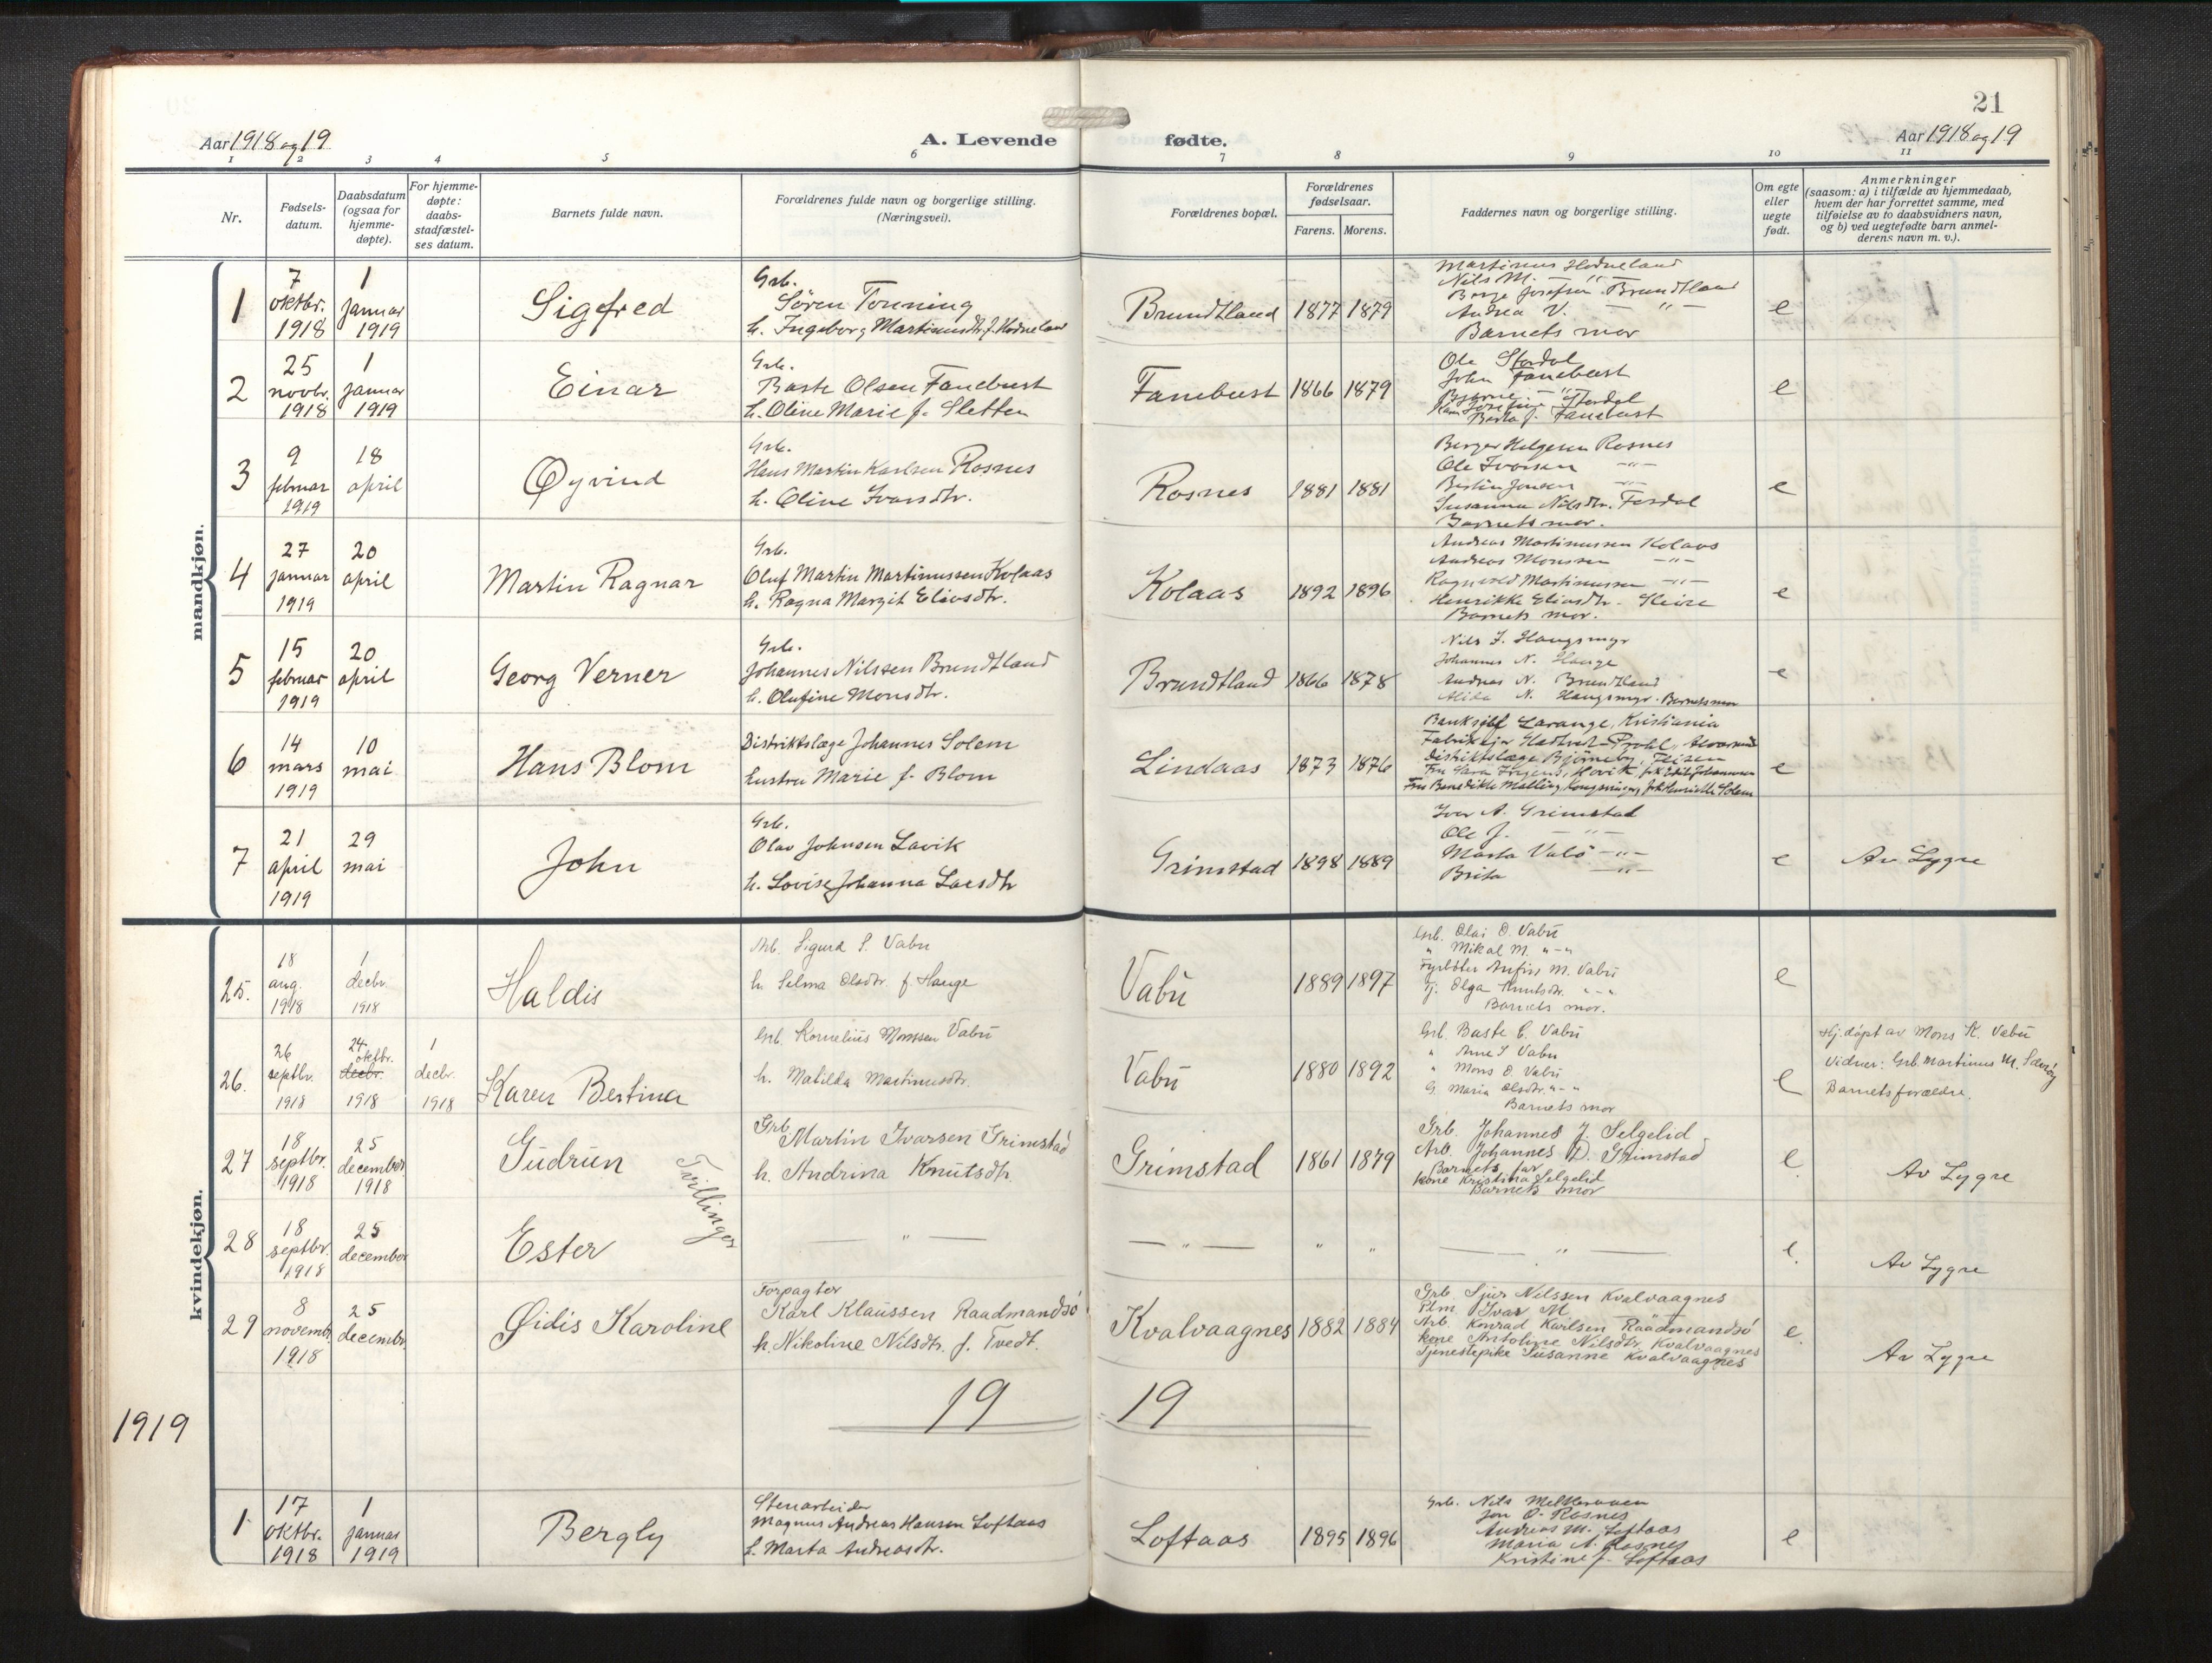 21
Aar 1918 og 19
A. Levende fødte.
Aar 1918 og 19
1 2 3 4 5 6 7 8 9 10 11
Nr.
Fødsels-
datum.
Daabsdatum
(ogsaa for
hjemme-
døpte).
For hjemme-
døpte:
daabs-
stadfæstel-
ses datum.
Barnets fulde navn.
Forældrenes fulde navn og borgerlige stilling.
(Næringsvei).
Forældrenes bopæl.
Forældrenes
fødselsaar.
Farens. Morens.
Faddernes navn og borgerlige stilling.
Om egte
eller
uegte
født.
Anmerkninger
(saasom: a) i tilfælde av hjemmedaab,
hvem der har forrettet samme, med
tilføielse av to daabsvidners navn,
og b) ved uegtefødte barn anmel-
derens navn m. v.).
mandkjøn.
1
7
oktbr.
1918
1
januar
1919
Sigfred
Grb.
Søren Tonning
h. Ingeborg Martinusdtr. f. Hodneland
Brundtland 1877 1879
Martinus Hodneland
Nils M. — " —
Børge Josefsen Brundtland
Andrea V. " —
Barnets mor
e
2
25
novbr.
1918
1
januar
1919
Einar
Grb.
Baste Olsen Fanebust
h. Oline Marie f. Sletten
Fanebust 1866 1879
Ole Stordal
John Fanebust
Bjarne — " —
Josefine Stordal
Berta J. Fanebust
e
3
9
februar
1919
18
april
Øyvind
Grb.
Hans Martin Karlsen Rosnes
h. Oline Ivarsdtr.
Rosnes 1881 1881
Berger Helgesen Rosnes
Ole Ivarsen — " —
Bertin Jensen — " —
Susanna Nilsdtr. Festdal
Barnets mor.
e
4
27
januar
1919
20
april
Martin Ragnar
Grb.
Oluf Martin Martinussen Kolaas
h. Ragna Margit Eliasdtr.
Kolaas 1892 1896
Andreas Martinussen Kolaas
Andreas Monsen — " —
Ragnvald Martinussen — " —
Henrikke Eliasdtr.
Barnets mor.
e
5
15
februar
1919
20
april
Georg Verner
Grb.
Johannes Nilssen Brundtland
h. Olufine Monsdtr.
Brundtland 1866 1878
Nils J. Haugsmyr
Johannes N. Hauge
Andreas N. Brundtland
Alida N. Haugsmyr. Barnets mor
e
6
14
mars
1919
10
mai
Hans Blom
Distriktslæge Johannes Solem
hustru Marie f. Blom
Lindaas 1873 1876
Banksjef Larange, Kristiania
Fabrikeier Prohl, Alversund
Distriktslæge Bjørneby,
Fru Sara Hovik,
Fru Benedikte Malling, Kongsvinger, frk. Henriette Solem
e
7
21
april
1919
29
mai
John
Grb.
Olav Johnsen Lavik
h. Lovise Johanna Larsdtr
Grimstad 1898 1889
Iver A. Grimstad
Ole J. — " —
Marta Vabø — " —
Brita — " —
e
Av Lygre
kvindekjøn.
25.
18
aug.
1918
1
decbr.
1918
Haldis
Arb. Sigurd S. Vabø
h. Selma Olsdtr. f. Hauge
Vabø 1889 1897
Grb. Olai O. Vabø
" Mikal M. " — "
Fyrbøter Anfin M. Vabø
Pj. Olga Knutsdtr. " — "
Barnets mor.
e
26.
26
septbr.
1918
24.
oktbr.
decbr.
1918
1
decbr.
1918
Karen Bertina
Grb. Kornelius Monssen Vabø
h. Matilda Martinusdtr.
Vabø 1880 1892
Grb. Baste C. Vabø
" Arne S Vabø
" Mons O Vabø
G. Maria Olsdtr. " — "
Barnets mor
e
Hj. døpt av Mons K. Vabø
Vidner: Grb. Martinus M.
Barnets forældre.
27
18
septbr.
1918
25
december
1918
Gudrun
Tvillinger
Grb.
Martin Ivarsen Grimstad
h. Andrina Knutsdtr.
Grimstad 1861 1879
Grb. Johannes J. Selgelid
Arb. Johannes D. Grimstad
Barnets far
kone Kristina Selgelid
Barnets mor
e
Av Lygre
28
18
septbr.
1918
25
december
Ester
— " —
— " — " "
— " —
e.
Av Lygre
29
8
novembr.
1918
25
decembr.
Øidis Karoline
Forpagter
Karl Klaussen Raadmandsø
h. Nikoline Nilsdtr. f. Tvedt.
Kvalvaagnes 1882 1884
Grb. Sjur Nilssen Kvalvaagnes
Plm. Ivar M
Arb. Konrad Karlsen Raadmandsø
kone Antoline Nilsdtr. Kvalvaagnes
Tjenestepike Susanne Kvalvaagnes
e.
Av Lygre
1919
19 19
1
17
oktbr.
1918
1
januar
1919
Bergly
Stenarbeider
Magnus Andreas Hansen Loftaas
h. Marta Andreasdtr.
Loftaas 1895 1896
Grb. Nils
Jon O. Rosnes
Andreas M. Loftaas
Maria A. Rosnes
Kristine J. Loftaas
e